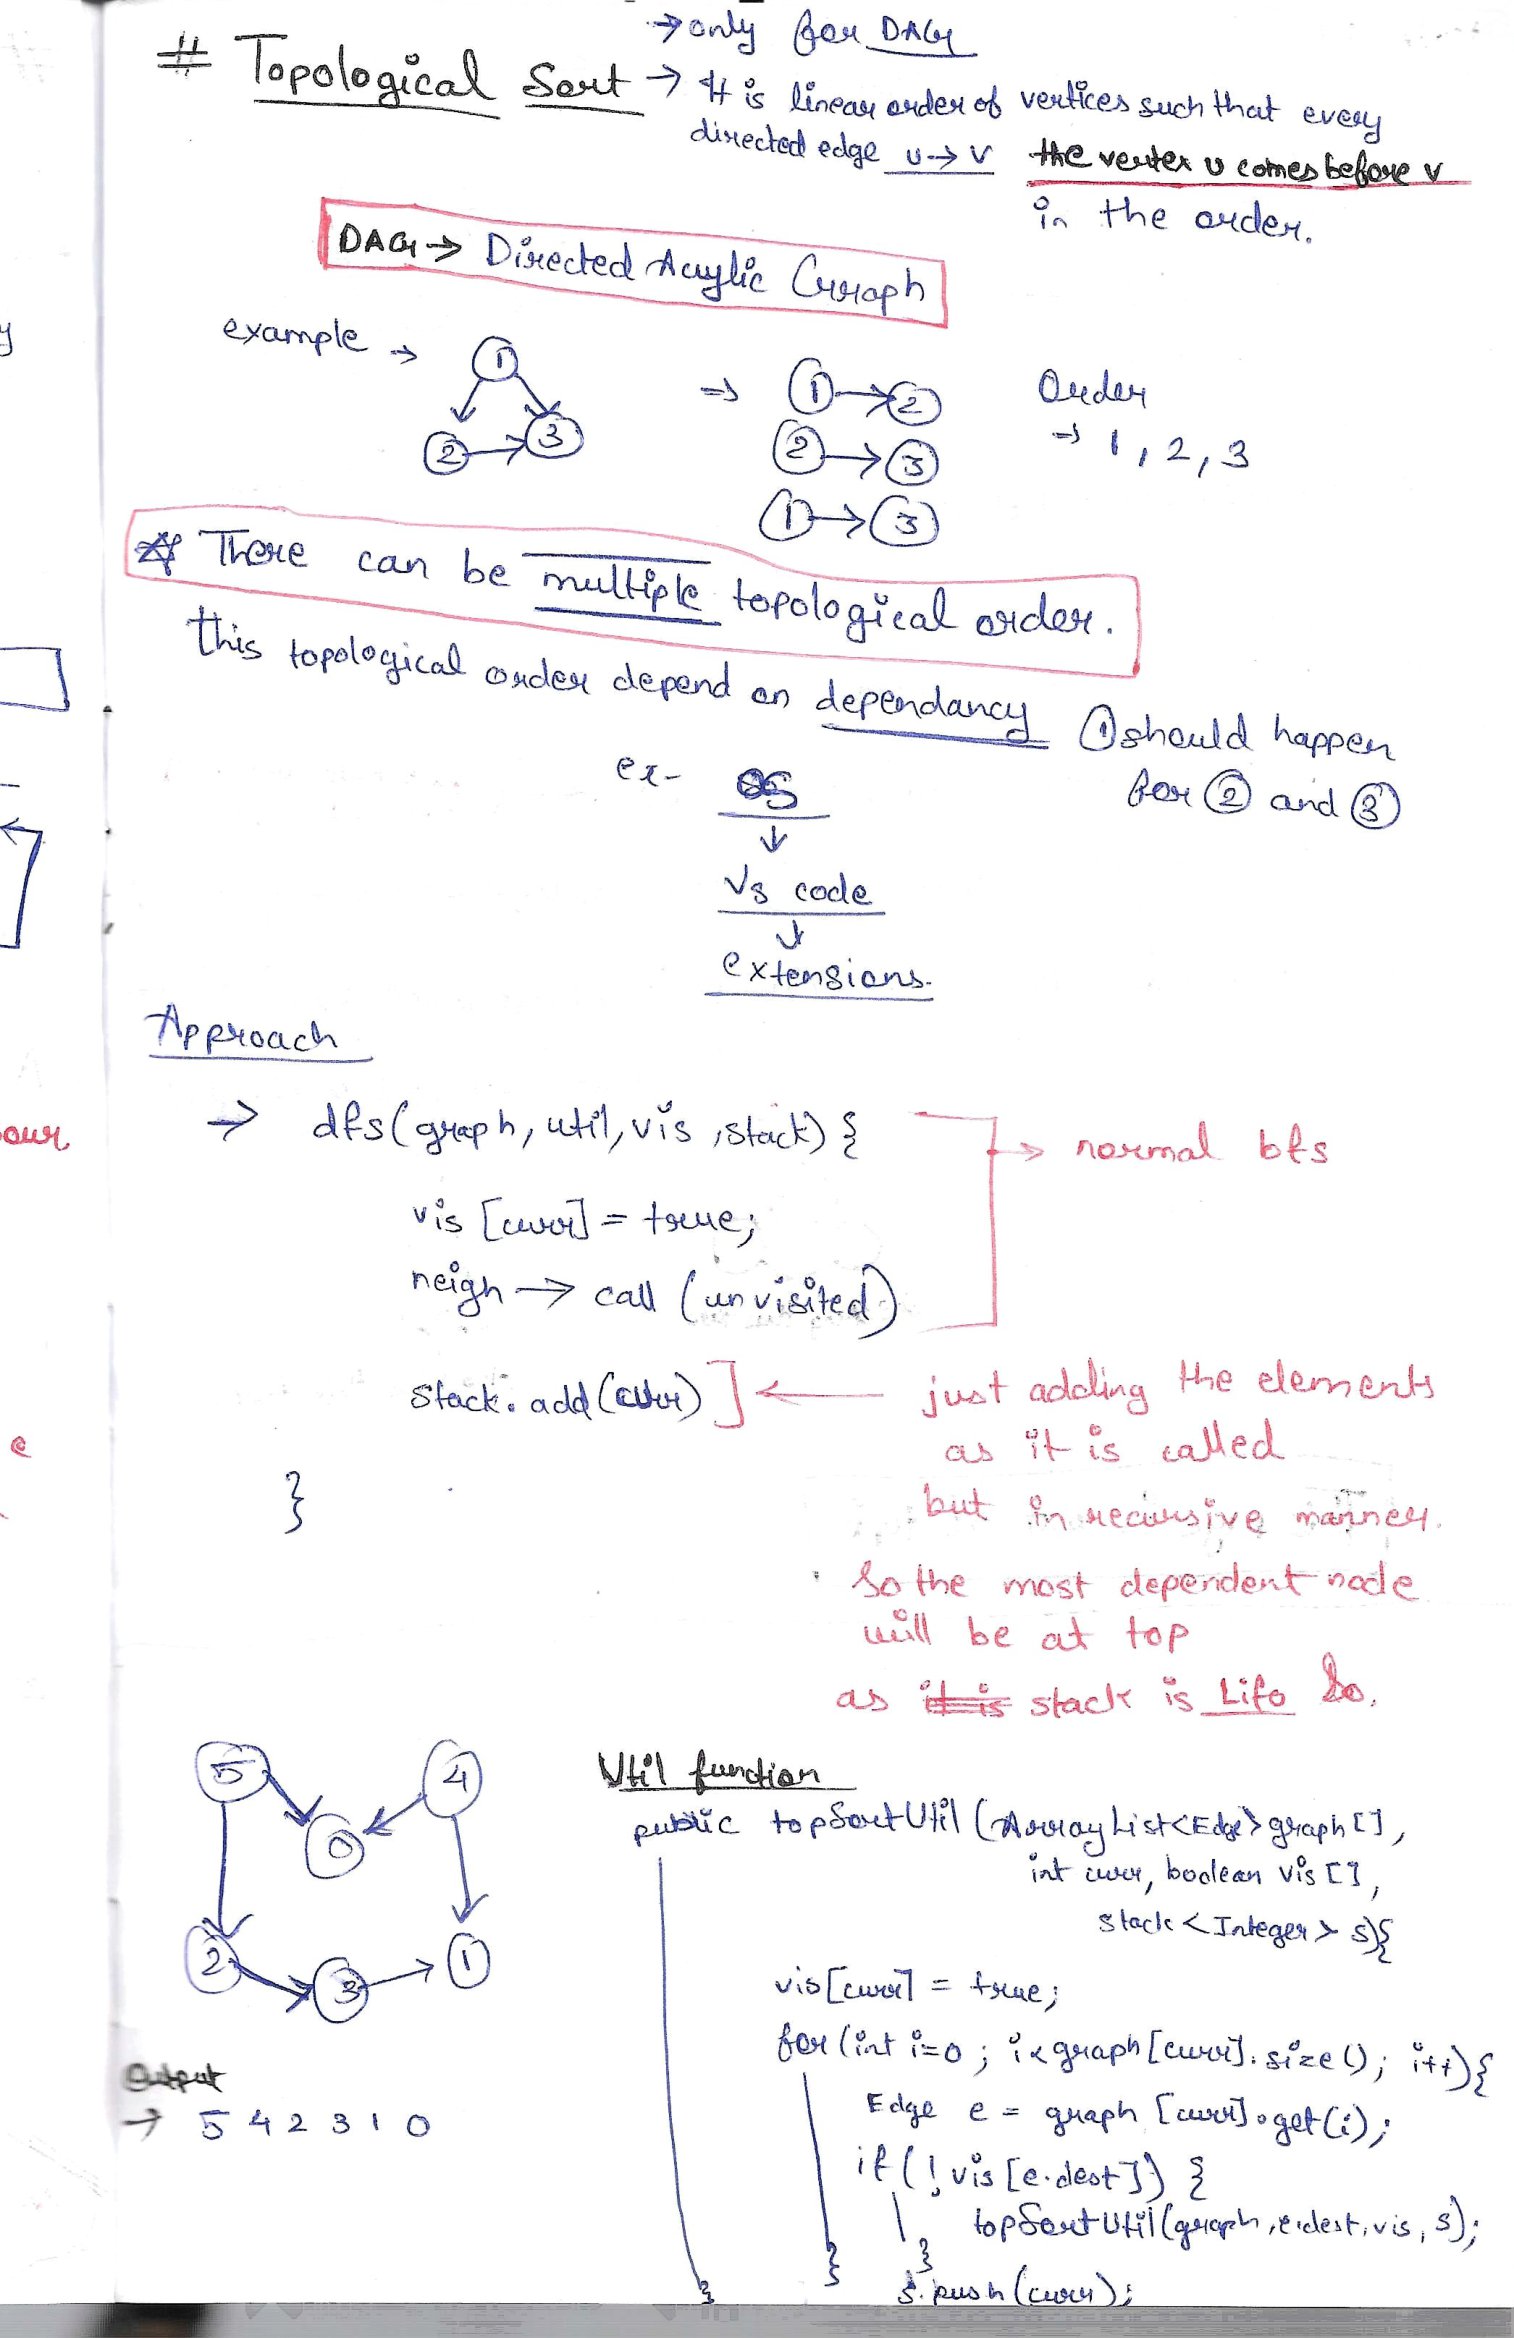 → only for DAG
# Topological Sort → It is linear order of vertices such that every
directed edge u→v the vertex u comes before v
in the order.
DAG → Directed Acylic Graph
example →
1
2 → 3
⇒ 1 → 2
2 → 3
1 → 3
Order
⇒ 1, 2, 3
There can be multiple topological order.
this topological order depend on dependancy ① should happen
for ② and ③
ex- OS
↓
Vs code
↓
extensions.
Approach
→ dfs(graph, util, vis, stack) {
vis [curr] = true;
neigh → call (unvisited)
→ normal bfs
stack. add (curr) ] ← just adding the elements
as it is called
but in recursive manner.
So the most dependent node
will be at top
as it is stack is Lifo So.
}
5 4
0
2 3 1
Output
→ 5 4 2 3 1 0
Util function
public topSortUtil (ArrayList<Edge> graph [],
int curr, boolean vis [],
stack <Integer> s){
vis[curr] = true;
for (int i=0; i<graph[curr].size(); i++){
Edge e = graph [curr].get(i);
if (!vis[e.dest]) {
topSortUtil(graph, e.dest, vis, s);
}
}
s.push(curr);
}
our
e
y